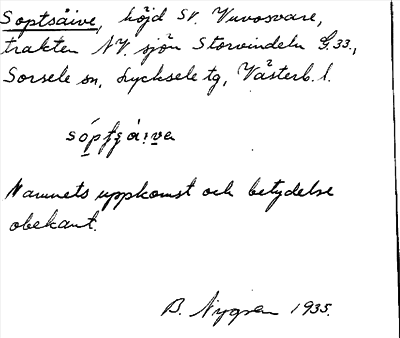 Soptsåive, höjd SV. Vuvosvare,
trakten NV. sjön Storvindeln G.33.,
Sorsele sn, Lycksele tg, Västerb. l.
Namnets uppkomst och betydelse
obekant.
B. Nygren 1935.